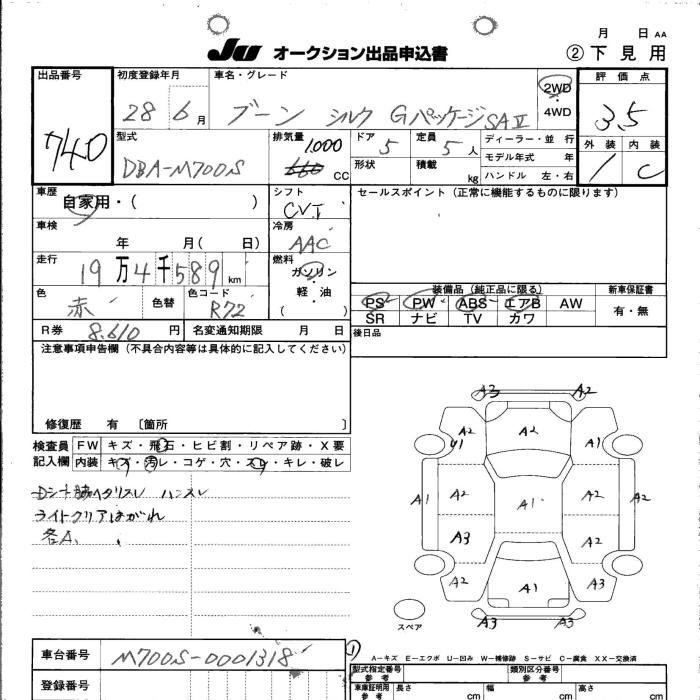 月 日 AA
JU オークション出品申込書 ②下見用
出品番号 初度登録年月 車名・グレード 2WD・4WD 評価点
740 28 6月 ブーン シルク Gパッケージ SAⅡ 3.5
型式 排気量 ドア 定員 ディーラー・並 行 外装 内装
DBA-M700S 1,000 660 CC 5 5人 モデル年式 年 1 C
形状 積載 kg ハンドル 左・右
車歴 シフト セールスポイント(正常に機能するものに限ります)
自家用・( ) CVT
車検 冷房
年 月( 日) AAC
走行 燃料
19万4千589km ガソリン
軽・油
( )
色 色替 色コード 装備品(純正品に限る) 新車保証書
赤 R72 PS PW ABS エアB AW 有・無
SR ナビ TV カワ
R券 8.610円 名変通知期限 月 日 後日品
注意事項申告欄(不具合内容等は具体的に記入してください)
修復歴 有 〔箇所 〕
検査員 FW キズ・飛石・ヒビ割・リペア跡・X要
記入欄 内装 キズ・汚レ・コゲ・穴・スレ・キレ・破レ
ライトクリアはがれ
各A.
A3 A2
A2 A2 A1
U1
A1 A2 A1 A2 A2
A3 A1
A2 A1 A3
A3 A3
スペア
A-キズ E-エクボ U-凹み W-補修跡 S-サビ C-腐食 XX-交換済
車台番号 M700S-0001318 ①
型式指定番号 参考 類別区分番号 参考
登録番号 車庫証明用 参考 長さ cm 幅 cm 高さ cm